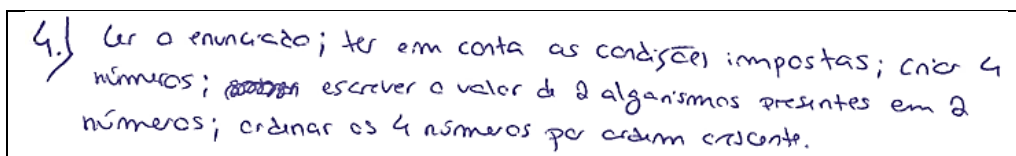 4.) Ler o enunciado; ter em conta as condições impostas; criar 4
números; escrever o valor de 2 algarismos presentes em 2
números; ordenar os 4 números por ordem crescente.